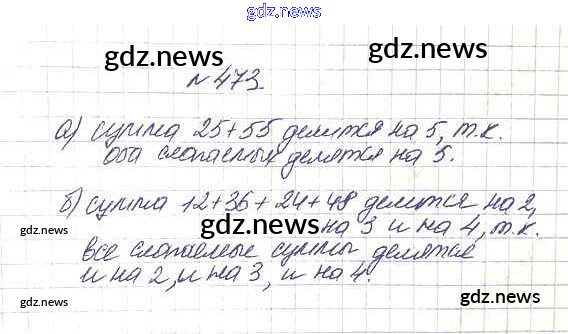 gdz.news
gdz.news
gdz.news
№ 473.
gdz.news
а) сумма 25+55 делится на 5, т.к.
оба слагаемых делятся на 5.
б) сумма 12+36+24+48 делится на 2,
gdz.news
на 3 и на 4, т.к.
gdz.news
gdz.news
все слагаемые суммы делятся
и на 2, и на 3, и на 4.
gdz.news
gdz.news